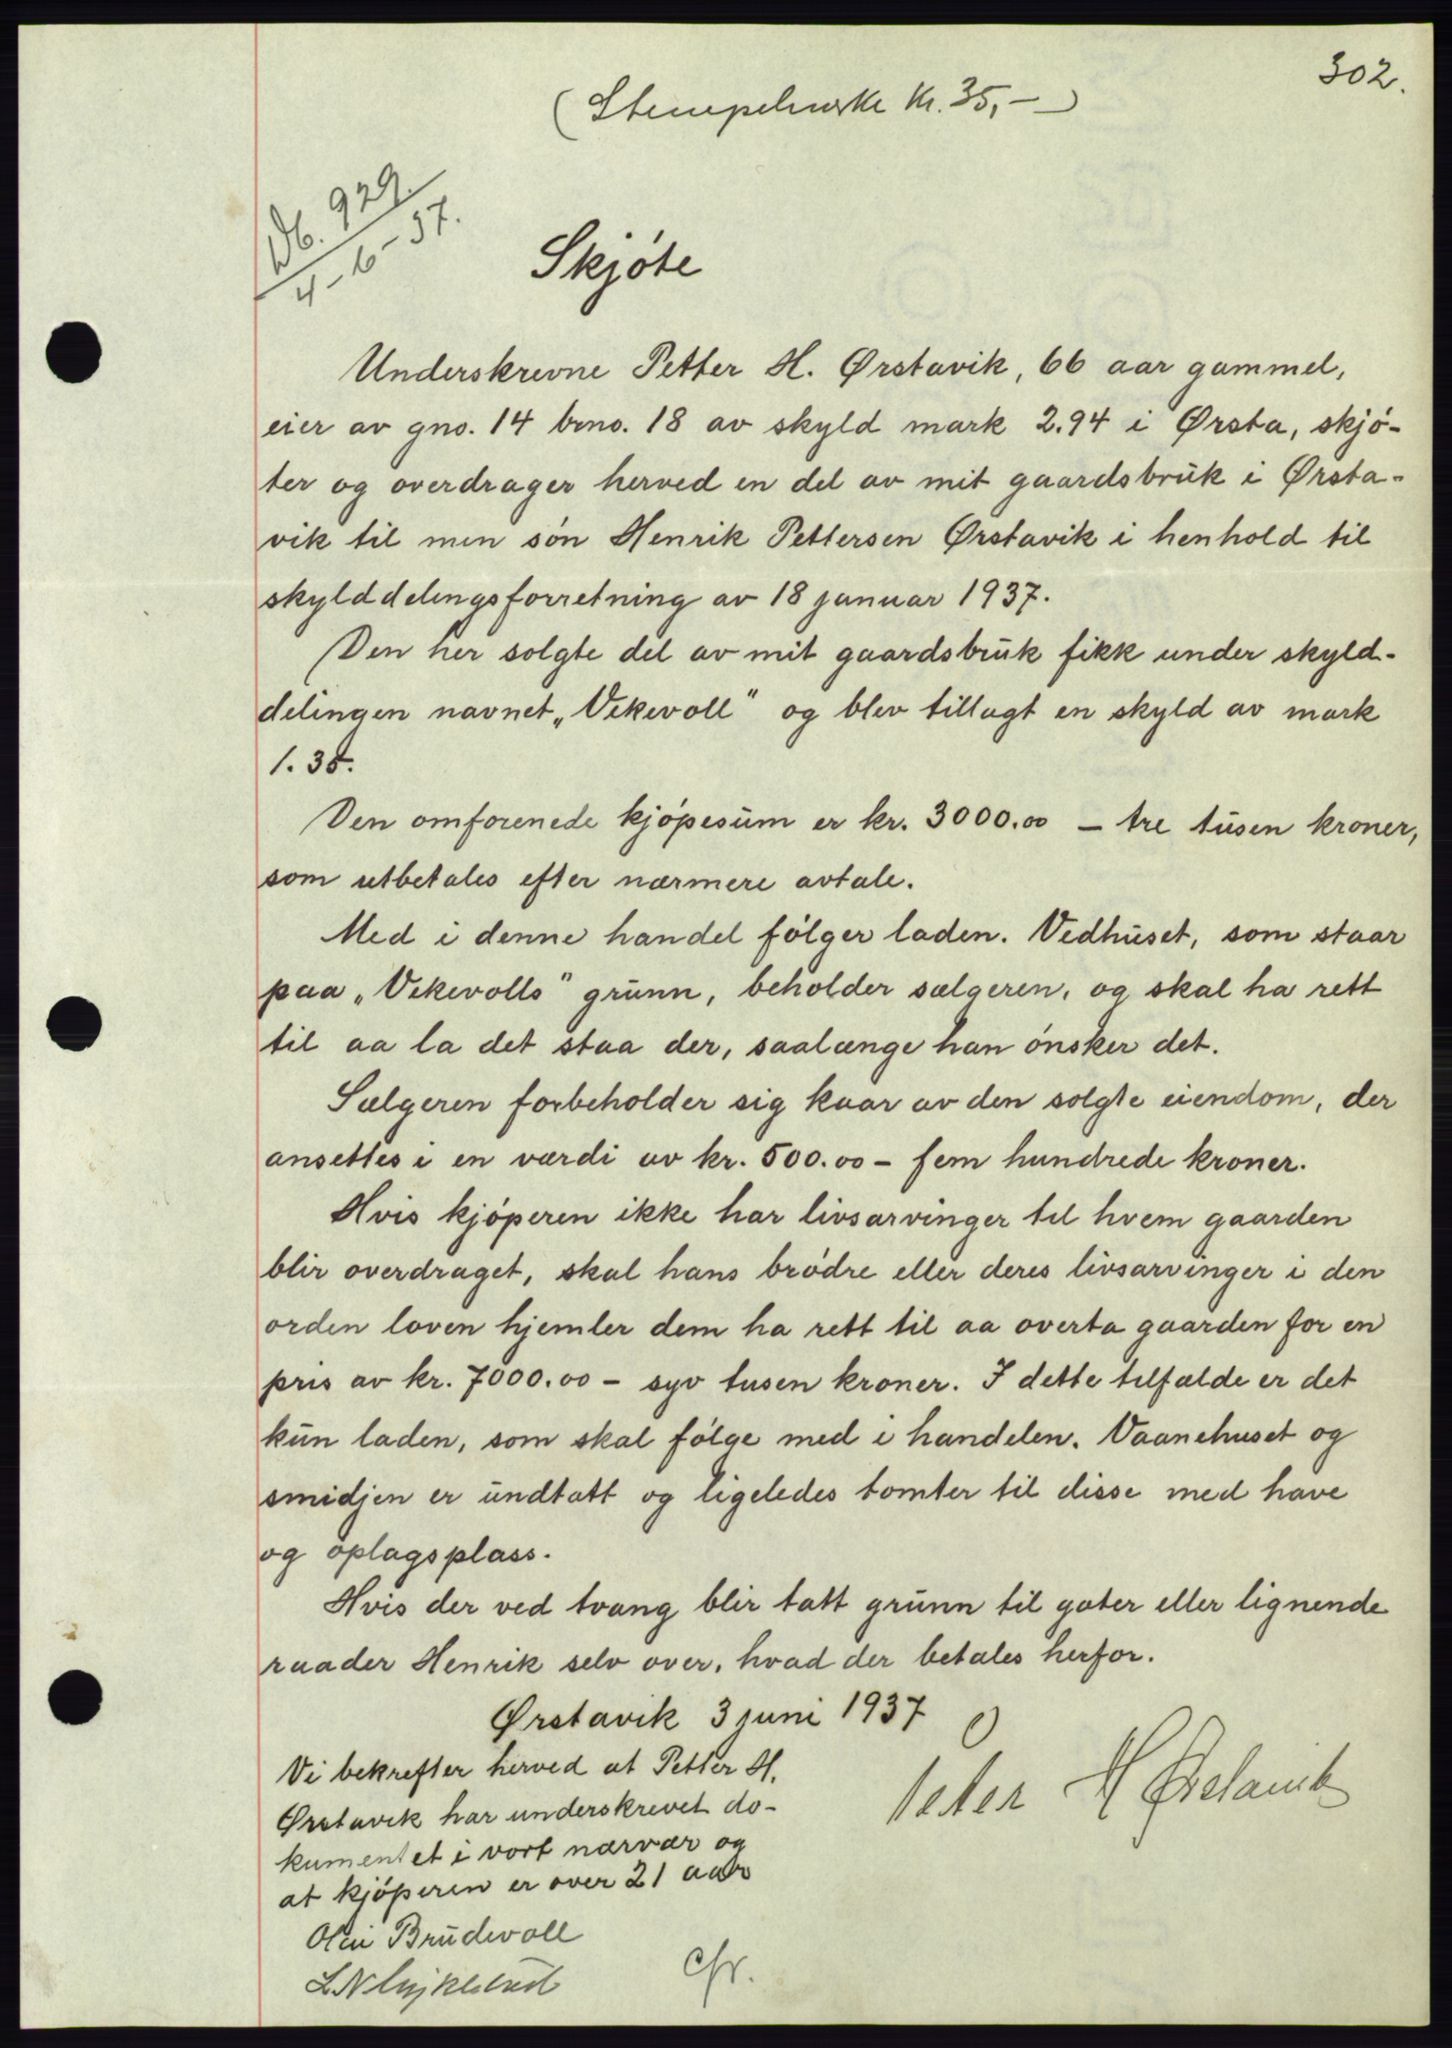 302.
(Stempelmerke Kr. 35,-)
Db. 929.
4-6-37.
Skjóte
Underskrevne Petter H. Ørstavik, 66 aar gammel,
eier av gno. 14 brno. 18 av skyld mark 2.94 i Ørsta, skjó-
ter og overdrager herved en del av mit gaardsbruk i Ørsta-
vik til min són Henrik Pettersen Ørstavik i henhold til
skylddelingsforretning av 18 januar 1937.
Den her solgte del av mit gaardsbruk fikk under skyld-
delingen navnet „Vekevoll" og blev tillagt en skyld av mark
1.35.
Den omforenede kjópesum er kr. 3000.00 - tre tusen kroner,
som utbetales efter nærmere avtale.
Med i denne handel fólger laden. Vedhuset, som staar
paa „Vekevolls" grunn, beholder sælgeren, og skal ha rett
til aa la det staa der, saalænge han ónsker det.
Sælgeren forbeholder sig kaar av den solgte eiendom, der
ansettes i en værdi av kr. 500.00 - fem hundrede kroner.
Hvis kjóperen ikke har livsarvinger til hvem gaarden
blir overdraget, skal hans bródre eller deres livsarvinger i den
orden loven hjemler dem ha rett til aa overta gaarden for en
pris av kr. 7000.00 - syv tusen kroner. I dette tilfælde er det
kun laden, som skal fólge med i handelen. Vaanehuset og
smidjen er undtatt og ligeledes tomter til disse med have
og oplagsplass.
Hvis der ved tvang blir tatt grunn til gater eller lignende
raader Henrik selv over, hvad der betales herfor.
Ørstavik 3 juni 1937
Peter H Ørstavik
Vi bekrefter herved at Petter H.
Ørstavik har underskrevet do-
kumentet i vort nærvær og
at kjóperen er over 21 aar
Olai Brudevoll
L N
cfr.